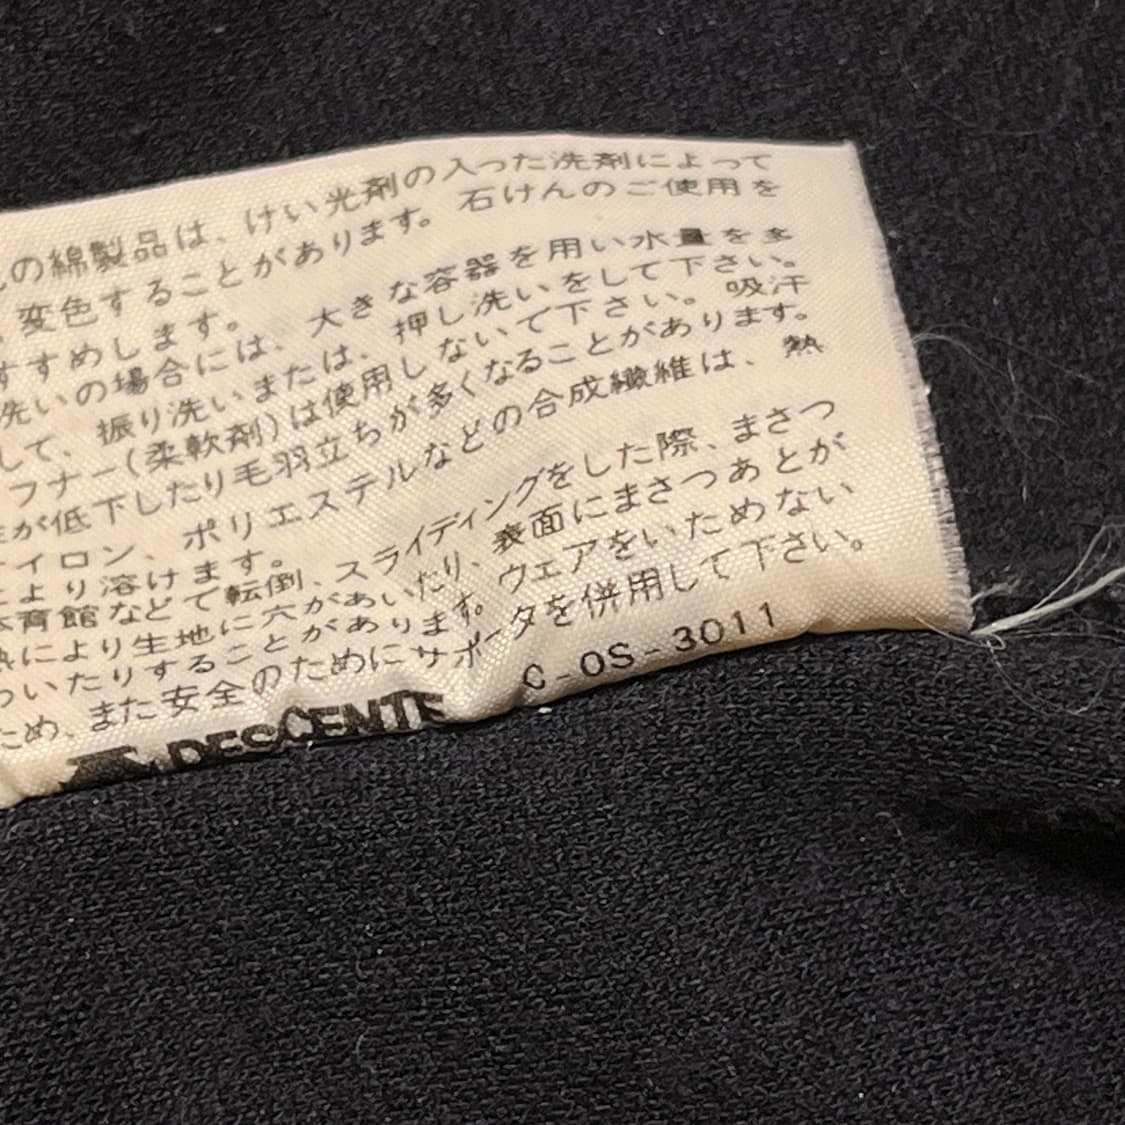 の綿製品は、けい光剤の入った洗剤によって
変色することがあります。石けんのご使用を
すすめします。
洗いの場合には、大きな容器を用い水量を多
して、振り洗いまたは、押し洗いをして下さい。
フナー(柔軟剤)は使用しないで下さい。吸汗
が低下したり毛羽立ちが多くなることがあります。
イロン、ポリエステルなどの合成繊維は、熱
により溶けます。
育館などで転倒、スライディングをした際、まさつ
により生地に穴があいたり、表面にまさつあとが
ついたりすることがあります。ウェアをいためない
ため、また安全のためにサポータを併用して下さい。
DESCENTE C-OS-3011